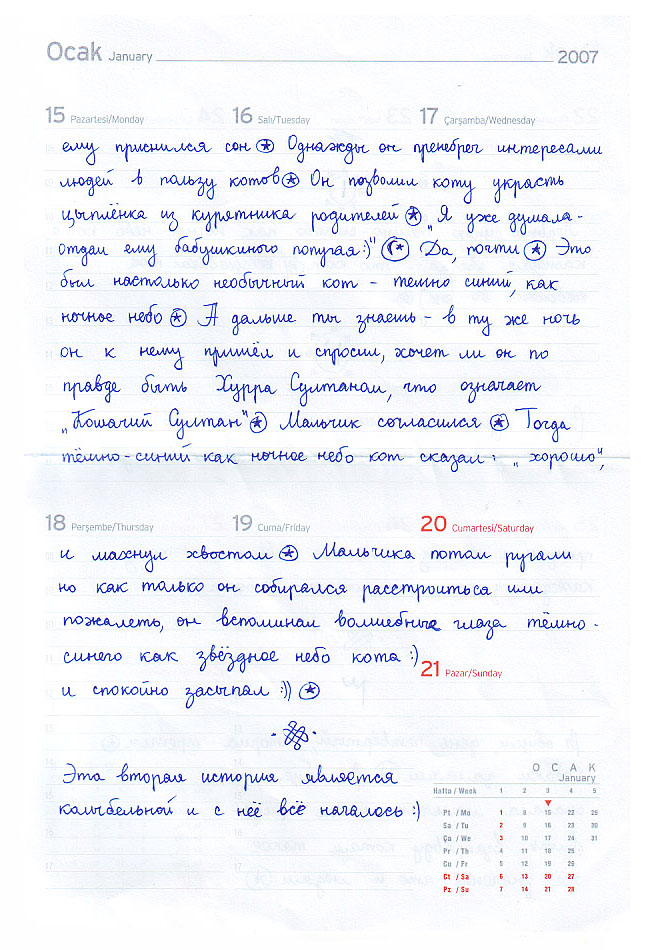 Ocak January 2007
15 Pazartesi/Monday 16 Salı/Tuesday 17 Çarşamba/Wednesday
ему приснился сон ⊛ Однажды он пренебрег интересами
людей в пользу котов ⊛ Он позволил коту украсть
цыплёнка из курятника родителей ⊛ „Я уже думала-
отдал ему бабушкиного попугая :)" ⊛ Да, почти ⊛ Это
был настолько необычный кот - темно синий, как
ночное небо ⊛ А дальше ты знаешь - в ту же ночь
он к нему пришёл и спросил, хочет ли он по
правде быть Хурра Султаном, что означает
„Кошачий Султан" ⊛ Мальчик согласился ⊛ Тогда
тёмно-синий как ночное небо кот сказал: „хорошо",
18 Perşembe/Thursday 19 Cuma/Friday 20 Cumartesi/Saturday
и махнул хвостом ⊛ Мальчика потом ругали
но как только он собирался расстроиться или
пожалеть, он вспоминал волшебные глаза тёмно-
синего как звёздное небо кота :)
21 Pazar/Sunday
и спокойно засыпал :)) ⊛
Эта вторая история является
колыбельной и с неё всё началось :)
O C A K
January
Hafta / Week 1 2 3 4 5
Pt / Mo 1 8 15 22 29
Sa / Tu 2 9 16 23 30
Ça / We 3 10 17 24 31
Pr / Th 4 11 18 25
Cu / Fr 5 12 19 26
Ct / Sa 6 13 20 27
Pz / Su 7 14 21 28